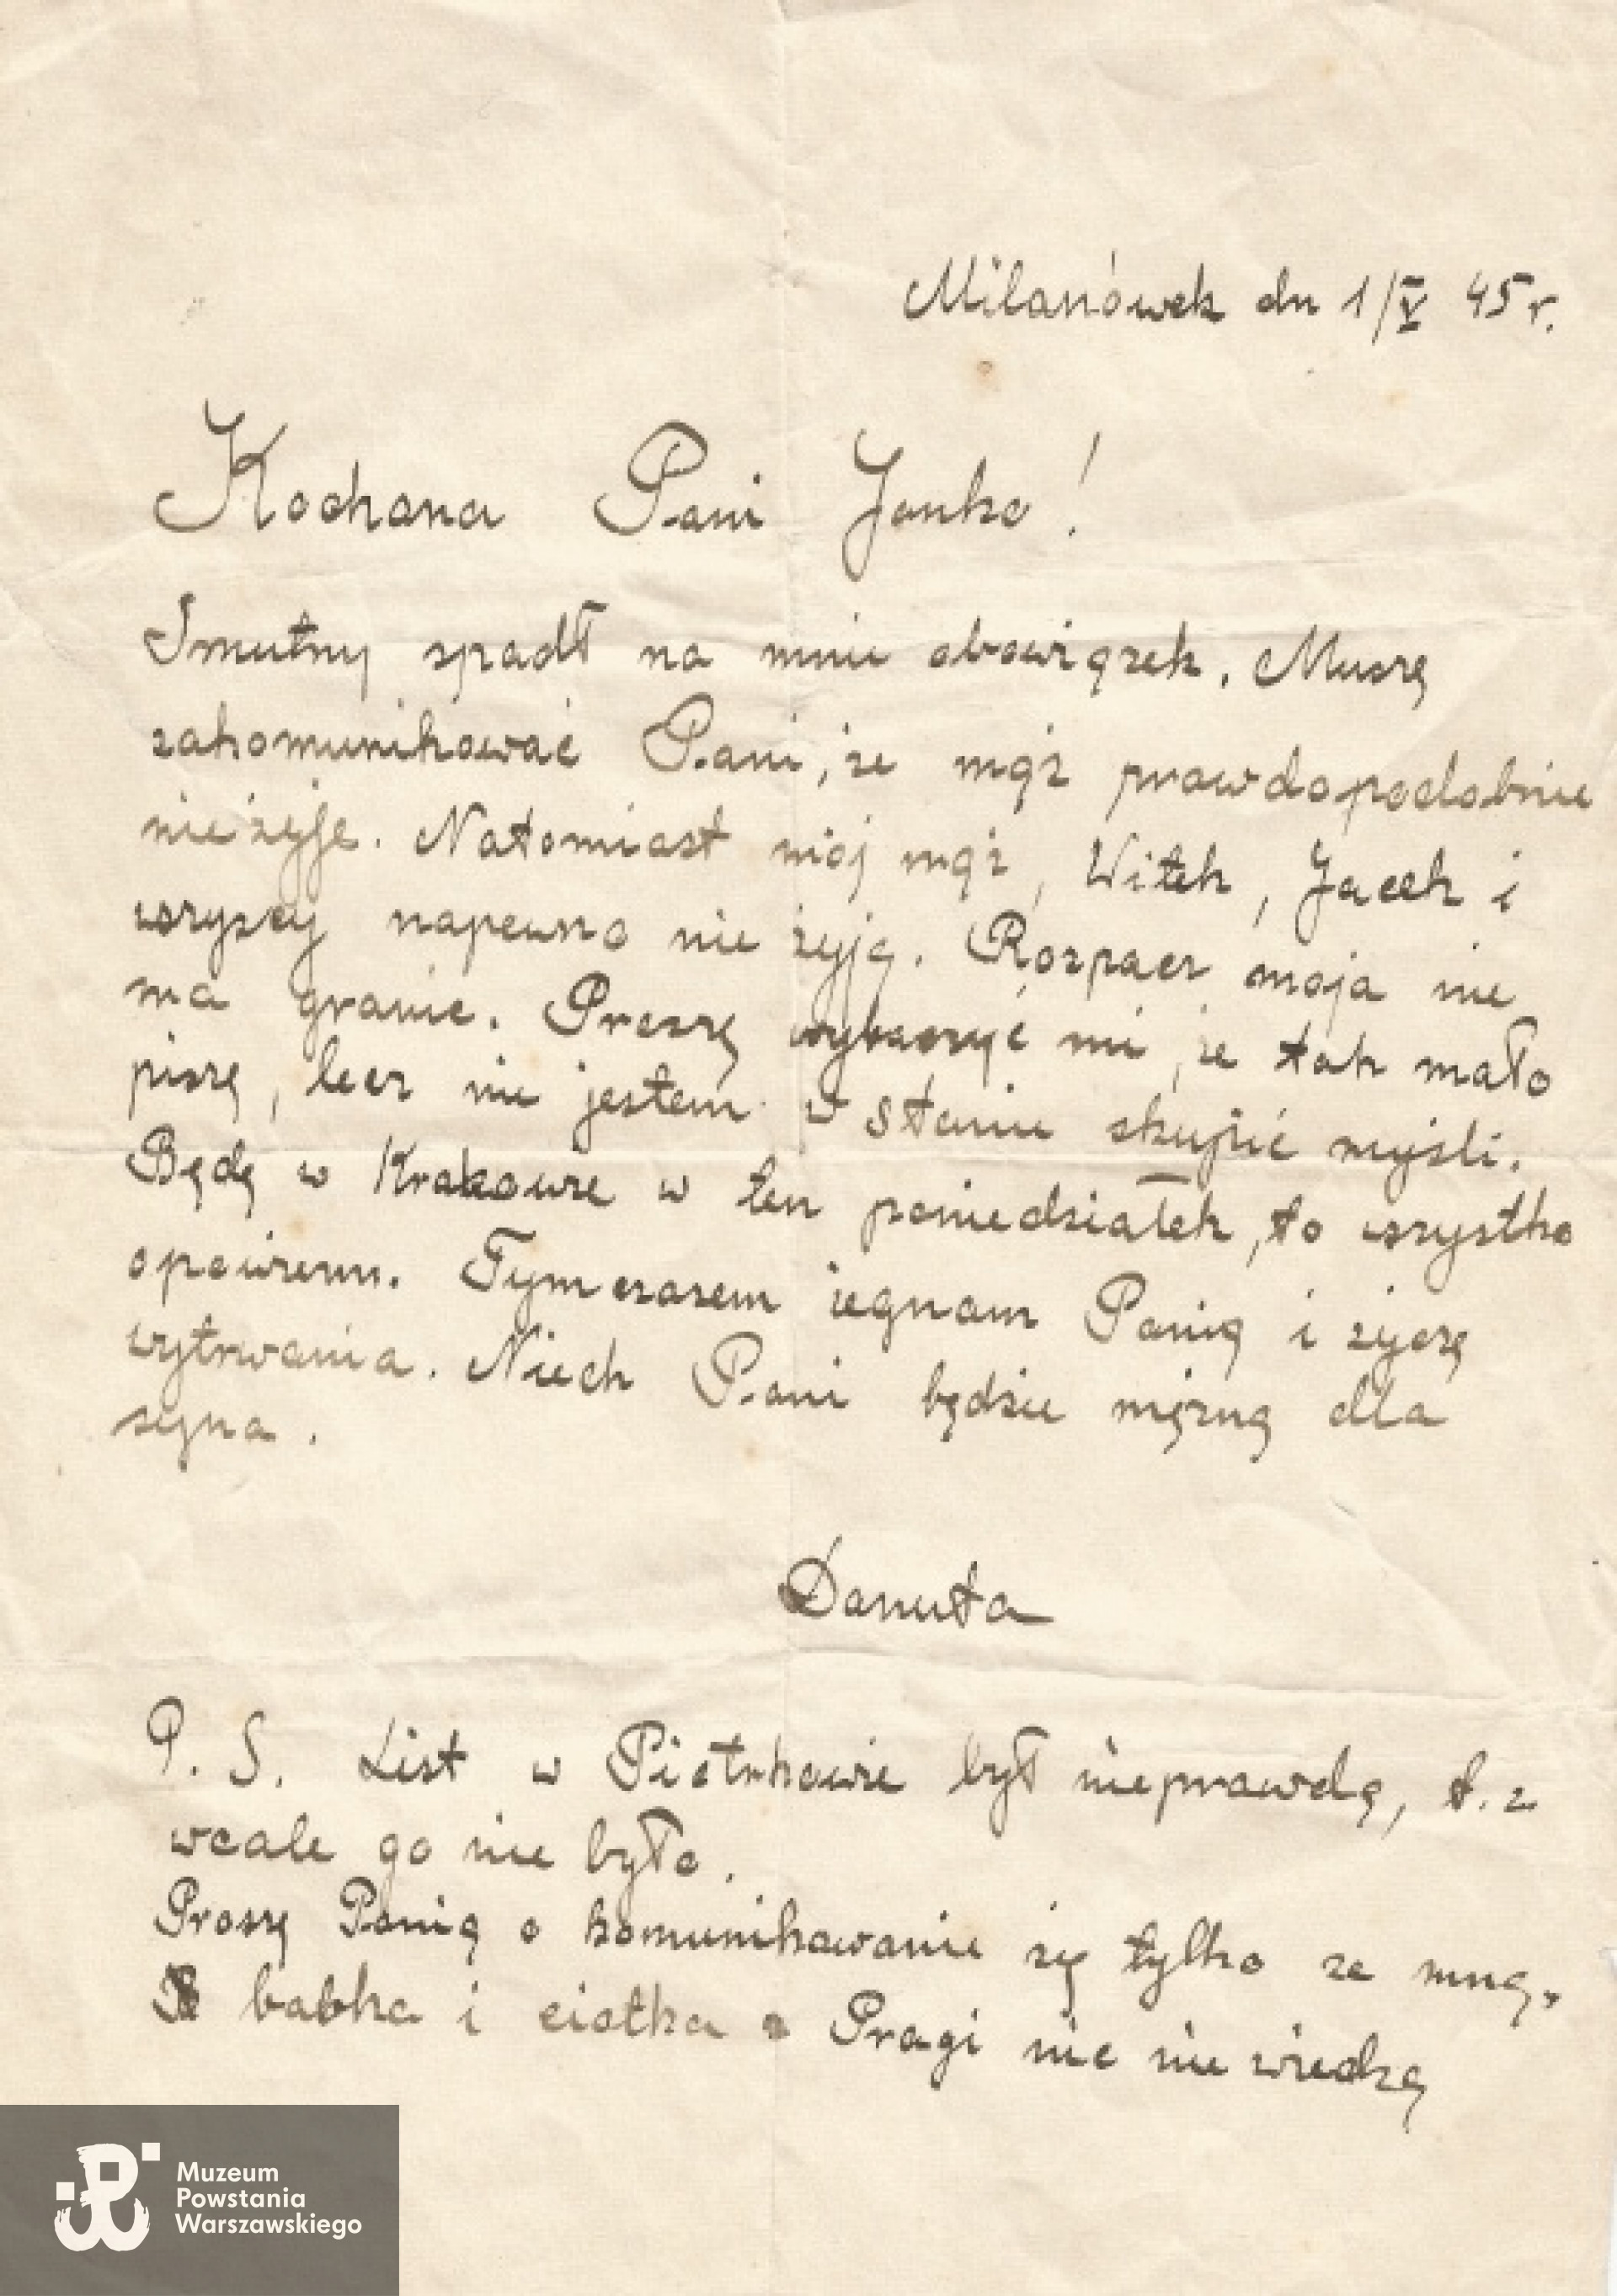 Milanówek dn 1/V 45 r.
Kochana Pani Janko!
Smutny spadł na mnie obowiązek. Muszę
zakomunikować Pani, że mąż prawdopodobnie
nie żyje. Natomiast mój mąż, Witek, Jacek i
wszyscy napewno nie żyją. Rozpacz moja nie
ma granic. Proszę wybaczyć mi, że tak mało
piszę, lecz nie jestem w stanie skupić myśli.
Będę w Krakowie w ten poniedziałek, to wszystko
opowiem. Tymczasem żegnam Panią i życzę
wytrwania. Niech Pani będzie mężną dla
syna.
Danuta
P. S. List w Piotrkowie był nieprawdą, t. z
wcale go nie było.
Proszę Panią o komunikowanie się tylko ze mną.
babka i ciotka z Pragi nic nie wiedzą
Muzeum
Powstania
Warszawskiego